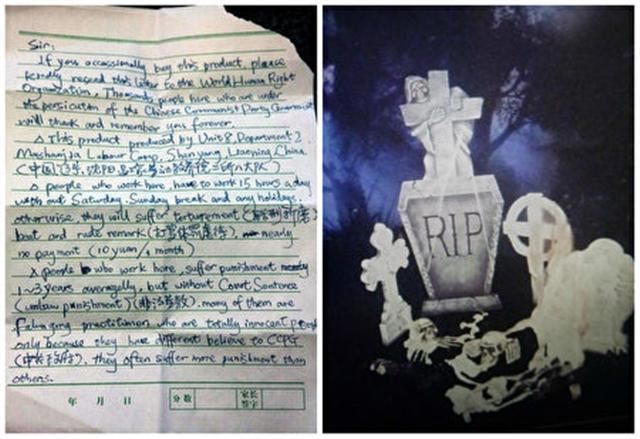 Sir:
If you occassionally buy this product, please
kindly resend this letter to the World Human Right
Organization. Thousands people here who are under
the persicution of the Chinese Communist Party Government
will thank and remember you forever.
This product produced by Unit 8, Department 2,
Mashanjia Labour Camp, Shenyang, Liaoning, China
(中国,辽宁,沈阳,马三家劳动教养院二所八大队)
people who work here, have to work 15 hours a day
without Saturday, Sunday break and any holidays,
otherwise, they will suffer torturement
beat and rude remark nearly
no payment (10 yuan/1 month)
people who work here, suffer punishment nearly
1~3 years averagelly, but without Court Sentence
(unlaw punishment) (非法劳教). many of them are
Falungong practitioner, who are totally innocent people
only because they have different believe to CCPG
they often suffer more punishment than
others.
年 月 日
分数
家长
签字
RIP